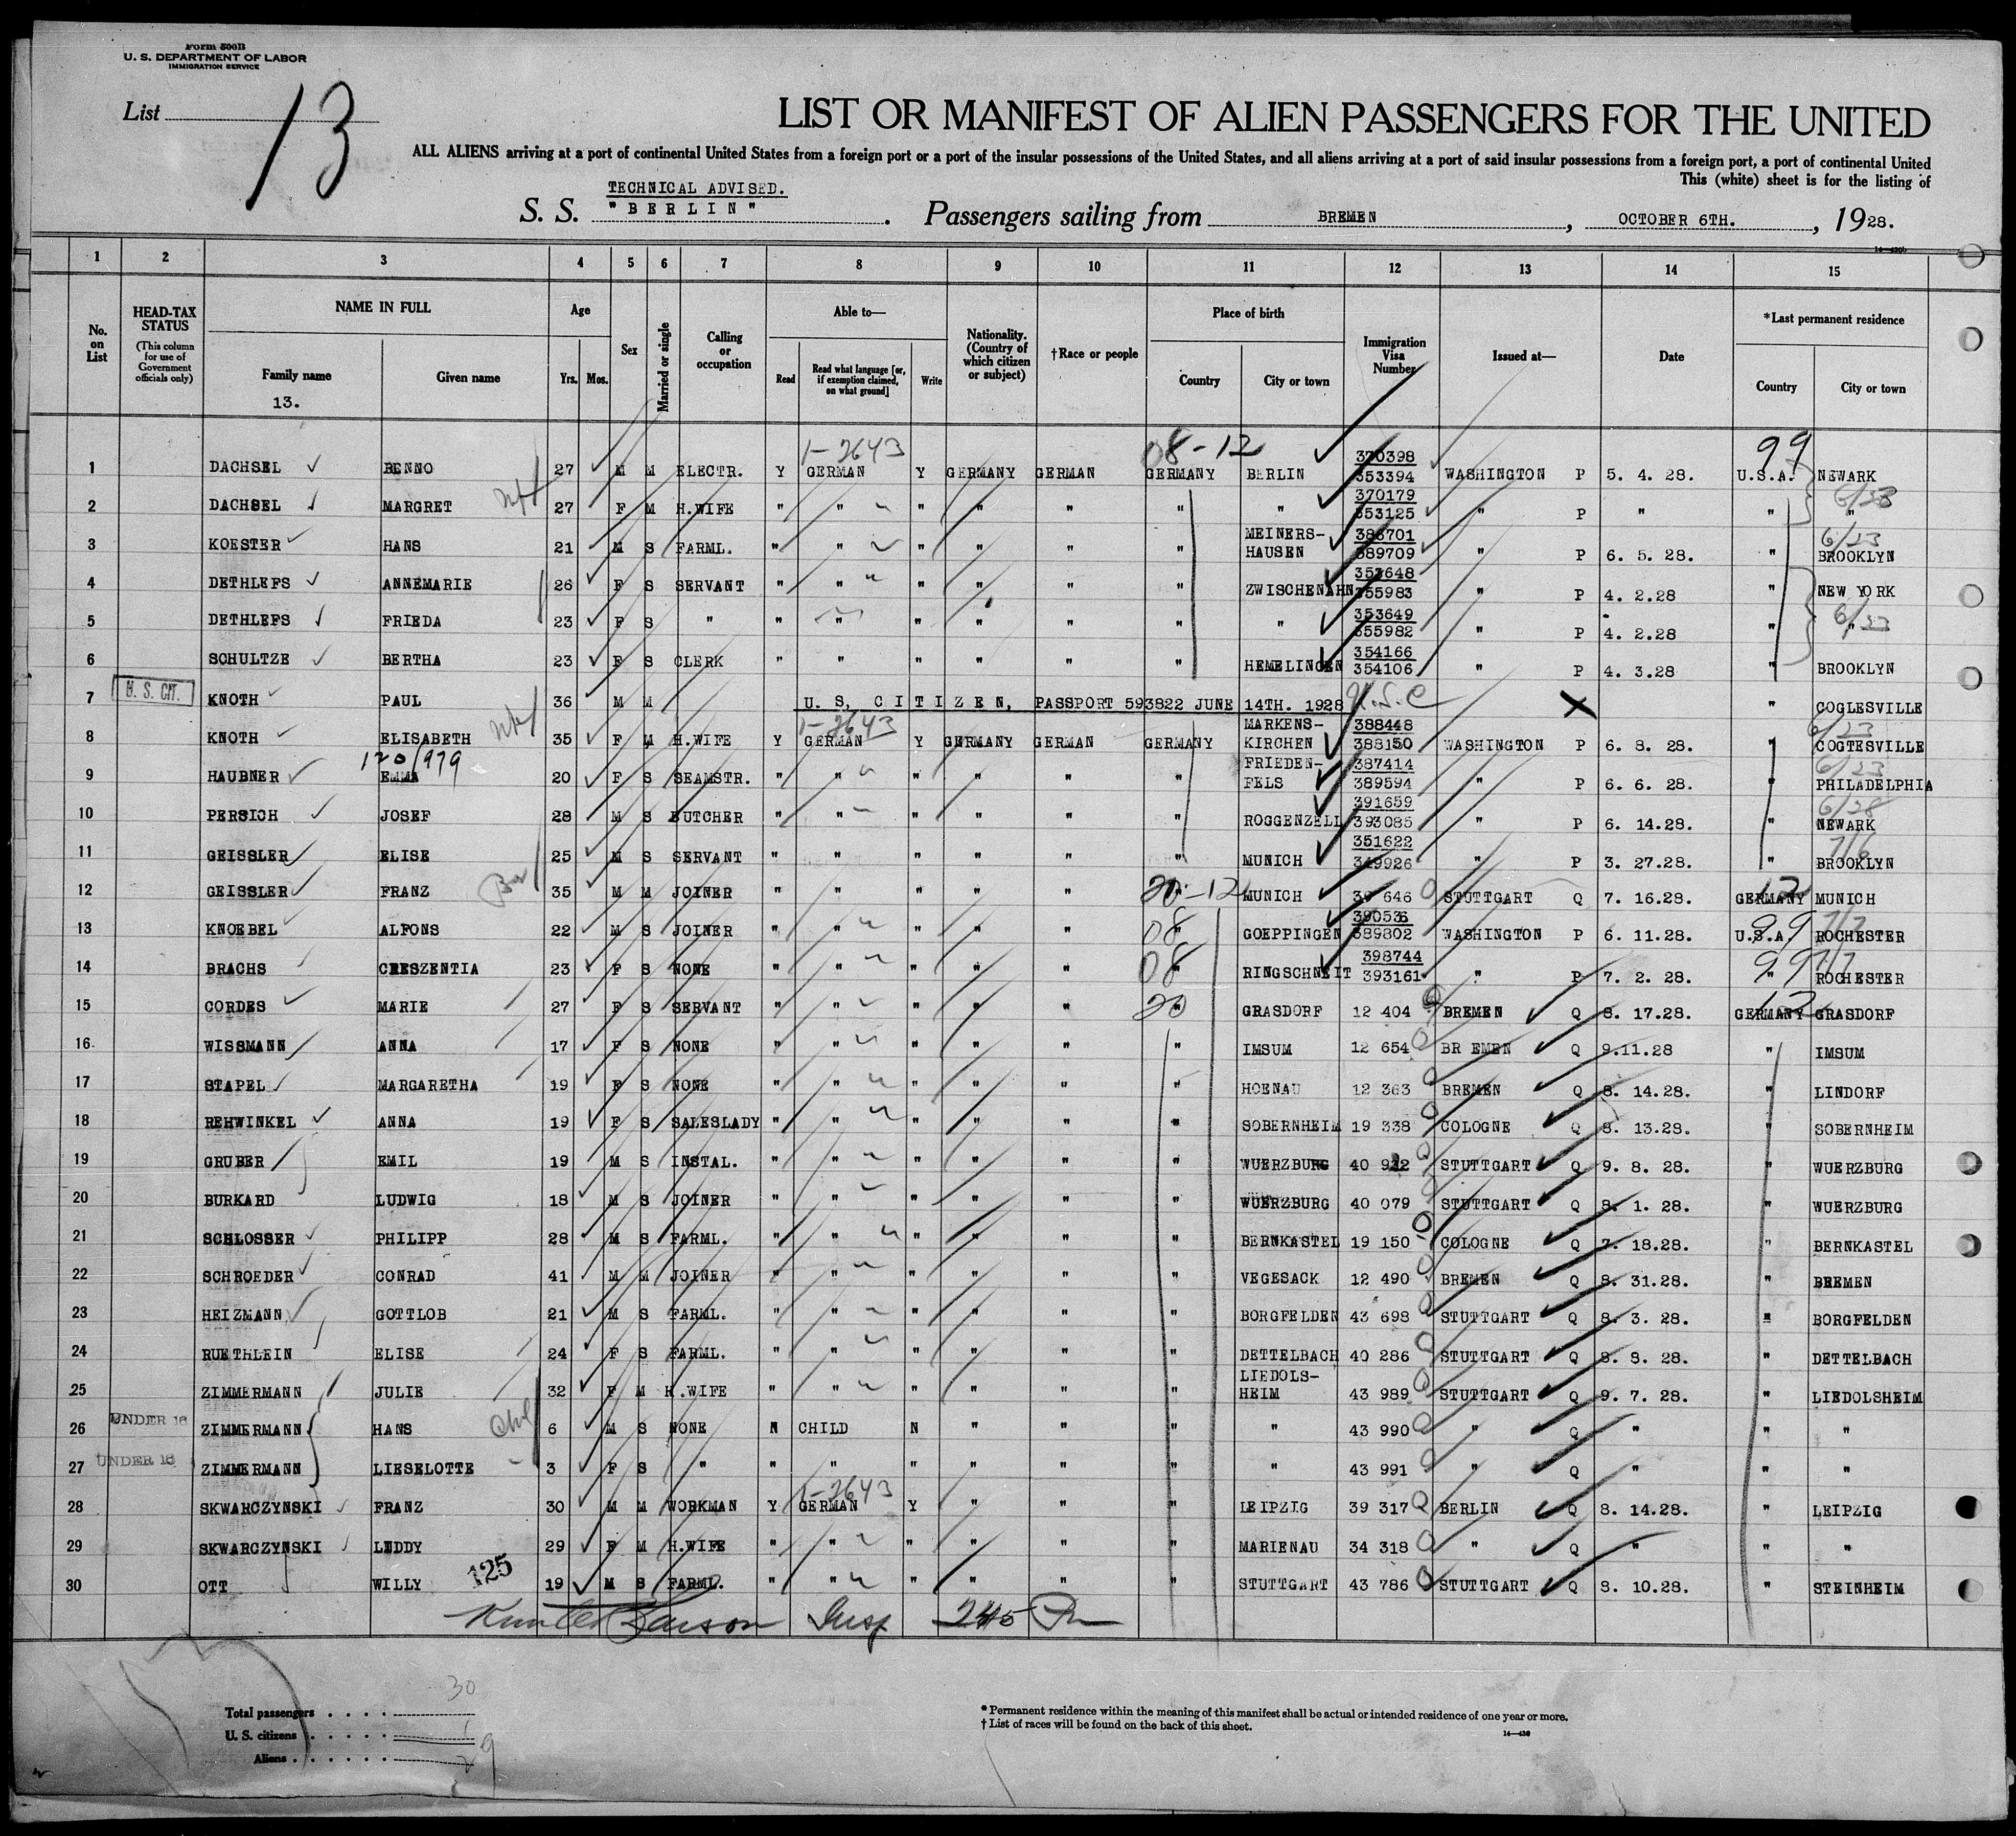 Form 500B
U. S. DEPARTMENT OF LABOR
IMMIGRATION SERVICE
List 13
LIST OR MANIFEST OF ALIEN PASSENGERS FOR THE UNITED
ALL ALIENS arriving at a port of continental United States from a foreign port or a port of the insular possessions of the United States, and all aliens arriving at a port of said insular possessions from a foreign port, a port of continental United
This (white) sheet is for the listing of
TECHNICAL ADVISED.
S. S. "BERLIN". Passengers sailing from BREMEN, OCTOBER 6TH., 1928.
1 2 3 4 5 6 7 8 9 10 11 12 13 14 15
No. on List
HEAD-TAX STATUS (This column for use of Government officials only)
NAME IN FULL
Family name
Given name
13.
Age
Yrs. Mos.
Sex
Married or single
Calling or occupation
Able to—
Read
Read what language [or, if exemption claimed, on what ground]
Write
Nationality. (Country of which citizen or subject)
†Race or people
Place of birth
Country
City or town
Immigration Visa Number
Issued at—
Date
*Last permanent residence
Country
City or town
1-2643 08-12 99
1 DACHSEL BENNO 27 M M ELECTR. Y GERMAN Y GERMANY GERMAN GERMANY BERLIN 370398 353394 WASHINGTON P 5. 4. 28. U.S.A. NEWARK
2 DACHSEL MARGRET 27 F M H.WIFE " " " " " " " 370179 353125 " P " " "
3 KOESTER HANS 21 M S FARML. " " " " " " MEINERS-HAUSEN 386701 389709 " P 6. 5. 28. " BROOKLYN 6/23
4 DETHLEFS ANNEMARIE 26 F S SERVANT " " " " " " ZWISCHENAHN 353648 355983 " P 4. 2.28 " NEW YORK
5 DETHLEFS FRIEDA 23 F S " " " " " " " " 353649 355982 " P 4. 2.28 " "
6 SCHULTZE BERTHA 23 F S CLERK " " " " " " HEMELINGEN 354166 354106 " P 4. 3.28 " BROOKLYN
U. S. CIT.
7 KNOTH PAUL 36 M M U. S, CITIZEN, PASSPORT 593822 JUNE 14TH. 1928 U.S.C X " COGLESVILLE
1-2643 6/23
8 KNOTH ELISABETH 35 F M H.WIFE Y GERMAN Y GERMANY GERMAN GERMANY MARKENS-KIRCHEN 388448 388150 WASHINGTON P 6. 8. 28. " COGTESVILLE
120/979 6/23
9 HAUBNER EMMA 20 F S SEAMSTR. " " " " " " FRIEDEN-FELS 387414 389594 " P 6. 6. 28. " PHILADELPHIA
10 PERSICH JOSEF 28 M S BUTCHER " " " " " " ROGGENZELL 391659 393085 " P 6. 14.28. " NEWARK 6/28
11 GEISSLER ELISE 25 M S SERVANT " " " " " " MUNICH 351622 349926 " P 3. 27.28. " BROOKLYN 7/6
12 GEISSLER FRANZ 35 M M JOINER " " " " " 20-12 MUNICH 39 646 STUTTGART Q 7. 16.28. GERMANY 12 MUNICH
13 KNOEBEL ALFONS 22 M S JOINER " " " " " 08 GOEPPINGEN 390536 389802 WASHINGTON P 6. 11.28. U.S.A. 99 ROCHESTER 7/7
14 BRACHS CRESZENTIA 23 F S NONE " " " " " 08 RINGSCHNEIT 398744 393161 " P 7. 2. 28. " 99 ROCHESTER 7/7
15 CORDES MARIE 27 F S SERVANT " " " " " 20 GRASDORF 12 404 BREMEN Q 8. 17.28. GERMANY 12 GRASDORF
16 WISSMANN ANNA 17 F S NONE " " " " " " IMSUM 12 654 BR EMEN Q 9.11.28 " IMSUM
17 STAPEL MARGARETHA 19 F S NONE " " " " " " HOENAU 12 363 BREMEN Q 8. 14.28. LINDORF
18 REHWINKEL ANNA 19 F S SALESLADY " " " " " " SOBERNHEIM 19 338 COLOGNE Q 8. 13.28. " SOBERNHEIM
19 GRUBER EMIL 19 M S INSTAL. " " " " " " WUERZBURG 40 922 STUTTGART Q 9. 8. 28. " WUERZBURG
20 BURKARD LUDWIG 18 M S JOINER " " " " " " WUERZBURG 40 079 STUTTGART Q 8. 1. 28. " WUERZBURG
21 SCHLOSSER PHILIPP 28 M S FARML. " " " " " " BERNKASTEL 19 150 COLOGNE Q 7. 18.28. " BERNKASTEL
22 SCHROEDER CONRAD 41 M M JOINER " " " " " " VEGESACK 12 490 BREMEN Q 8. 31.28. " BREMEN
23 HEIZMANN GOTTLOB 21 M S FARML. " " " " " " BORGFELDEN 43 698 STUTTGART Q 8. 3. 28. " BORGFELDEN
24 RUETHLEIN ELISE 24 F S FARML. " " " " " " DETTELBACH 40 286 STUTTGART Q 8. 8. 28. " DETTELBACH
25 ZIMMERMANN JULIE 32 F M H.WIFE " " " " " " LIEDOLS-HEIM 43 989 STUTTGART Q 9. 7. 28. " LIEDOLSHEIM
UNDER 16
26 ZIMMERMANN HANS 6 M S NONE N CHILD N " " " " 43 990 " Q " " "
UNDER 16
27 ZIMMERMANN LIESELOTTE 3 F S " " " " " " " " 43 991 " Q " " "
1-2643
28 SKWARCZYNSKI FRANZ 30 M M WORKMAN Y GERMAN Y " " " LEIPZIG 39 317 BERLIN Q 8. 14.28. " LEIPZIG
29 SKWARCZYNSKI LEDDY 29 F M H.WIFE " " " " " " MARIENAU 34 318 " Q " " "
30 OTT WILLY 125 19 M S FARML. " " " " " " STUTTGART 43 786 STUTTGART Q 8. 10.28. " STEINHEIM
Insp 245 Pm
Total passengers 30
U. S. citizens 1
Aliens 29
* Permanent residence within the meaning of this manifest shall be actual or intended residence of one year or more.
† List of races will be found on the back of this sheet.
14—430